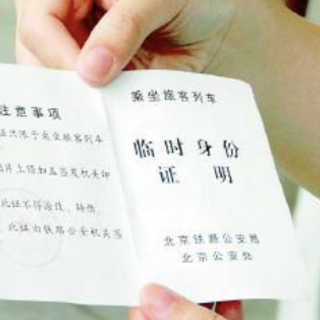 注意事项
证只限于乘坐旅客列车
相片上须加盖签发机关印
此证不得涂改、转借
此证由铁路公安机关签
乘坐旅客列车
临时身份
证明
北京铁路公安局
北京公安处